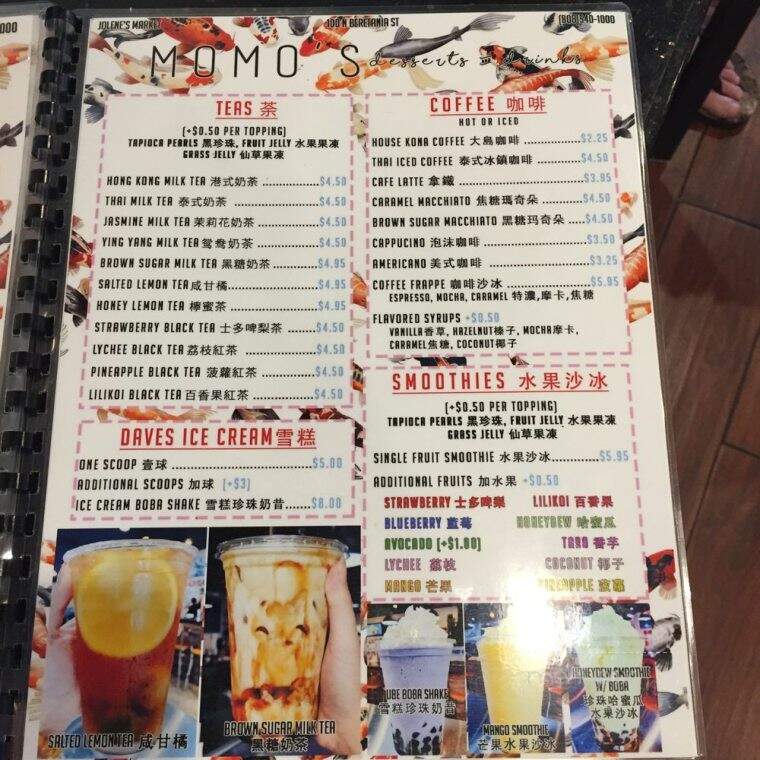 JOLENE'S MARKET
100 N BERETANIA ST
MOMO'S desserts & drinks
TEAS 茶
(+$0.50 PER TOPPING)
TAPIOCA PEARLS 黑珍珠, FRUIT JELLY 水果果凍
GRASS JELLY 仙草果凍
HONG KONG MILK TEA 港式奶茶 ............$4.50
THAI MILK TEA 泰式奶茶 ............$4.50
JASMINE MILK TEA 茉莉花奶茶 ............$4.50
YING YANG MILK TEA 鴛鴦奶茶 ............$4.50
BROWN SUGAR MILK TEA 黑糖奶茶 ............$4.95
SALTED LEMON TEA 咸甘橘 ............$4.95
HONEY LEMON TEA 檸蜜茶 ............$4.95
STRAWBERRY BLACK TEA 士多啤梨茶 ......$4.50
LYCHEE BLACK TEA 荔枝紅茶 ............$4.50
PINEAPPLE BLACK TEA 菠蘿紅茶 ............$4.50
LILIKOI BLACK TEA 百香果紅茶 ............$4.50
DAVES ICE CREAM 雪糕
ONE SCOOP 壹球 ............$5.00
ADDITIONAL SCOOPS 加球 (+$3)
ICE CREAM BOBA SHAKE 雪糕珍珠奶昔.......$8.00
COFFEE 咖啡
HOT OR ICED
HOUSE KONA COFFEE 大島咖啡 ............$2.25
THAI ICED COFFEE 泰式冰鎮咖啡 ............$4.50
CAFE LATTE 拿鐵 ............$3.95
CARAMEL MACCHIATO 焦糖瑪奇朵 ....$4.50
BROWN SUGAR MACCHIATO 黑糖玛奇朵 ....$4.50
CAPPUCINO 泡沫咖啡 ............$3.50
AMERICANO 美式咖啡 ............$3.25
COFFEE FRAPPE 咖啡沙冰 ............$5.95
ESPRESSO, MOCHA, CARAMEL 特濃,摩卡,焦糖
FLAVORED SYRUPS +$0.50
VANILLA香草, HAZELNUT榛子, MOCHA摩卡,
CARAMEL焦糖, COCONUT椰子
SMOOTHIES 水果沙冰
(+$0.50 PER TOPPING)
TAPIOCA PEARLS 黑珍珠, FRUIT JELLY 水果果凍
GRASS JELLY 仙草果凍
SINGLE FRUIT SMOOTHIE 水果沙冰............$5.95
ADDITIONAL FRUITS 加水果 +$0.50
STRAWBERRY 士多啤梨 LILIKOI 百香果
BLUEBERRY 藍莓 HONEYDEW 哈蜜瓜
AVOCADO (+$1.00) TARO 香芋
LYCHEE 荔枝 COCONUT 椰子
MANGO 芒果 PINEAPPLE 菠蘿
SALTED LEMON TEA 咸甘橘
BROWN SUGAR MILK TEA
黑糖奶茶
UBE BOBA SHAKE
雪糕珍珠奶昔
MANGO SMOOTHIE
芒果水果沙冰
HONEYDEW SMOOTHIE
W/ BOBA
珍珠哈蜜瓜
水果沙冰